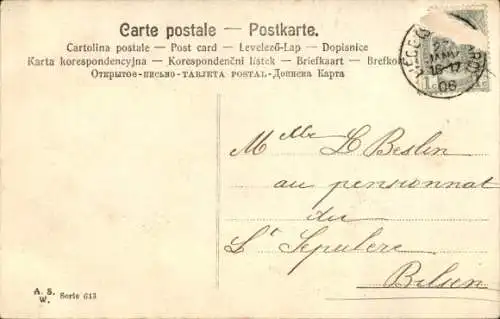 Carte postale — Postkarte.
Cartolina postale — Post card — Levelező-Lap — Dopisnice
Karta korespondencyjna — Korespondenční lístek — Briefkaart — Brefkort
Открытое-письмо-TARJETA POSTAL-Дописна Карта
25
JANV
16-17
06
Mlle L Beslin
au pensionnat
du
St Sepulcre
Bilsen
A. S.
W. Serie 613